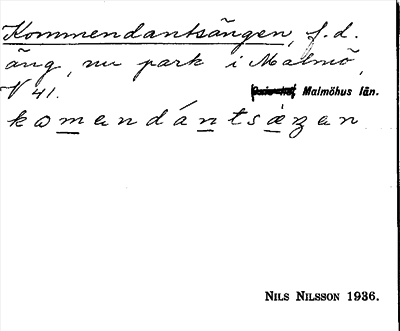 Kommendantsängen, f.d.
äng, nu park i Malmö,
V 41. Malmöhus län.
komendántsäŋan
NILS NILSSON 1936.